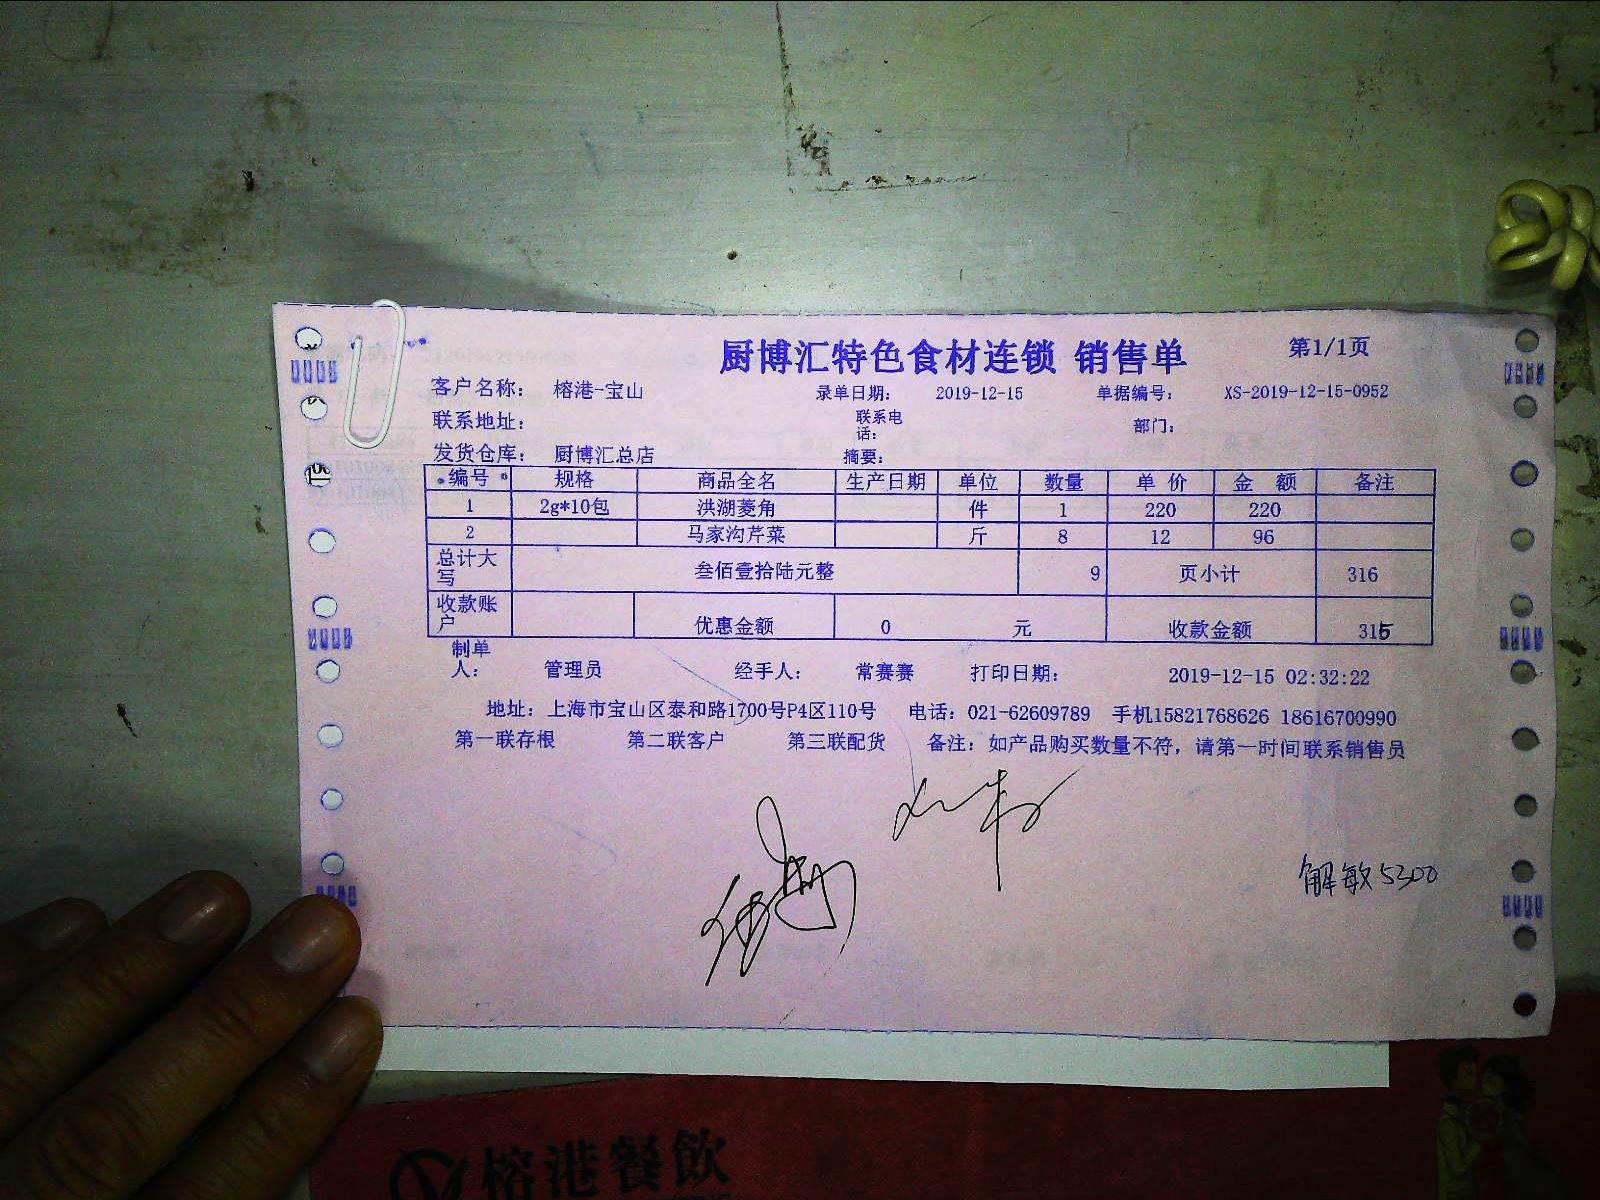 厨博汇特色食材连锁 销售单 第1/1页
客户名称： 榕港-宝山 录单日期： 2019-12-15 单据编号： XS-2019-12-15-0952
联系地址： 联系电话： 部门：
发货仓库： 厨博汇总店 摘要：
编号 规格 商品全名 生产日期 单位 数量 单价 金额 备注
1 2g*10包 洪湖菱角 件 1 220 220
2 马家沟芹菜 斤 8 12 96
总计大写 叁佰壹拾陆元整 9 页小计 316
收款账户 优惠金额 0 元 收款金额 315
制单人： 管理员 经手人： 常赛赛 打印日期： 2019-12-15 02:32:22
地址：上海市宝山区泰和路1700号P4区110号 电话：021-62609789 手机15821768626 18616700990
第一联存根 第二联客户 第三联配货 备注：如产品购买数量不符，请第一时间联系销售员
解敏5300
榕港餐飲